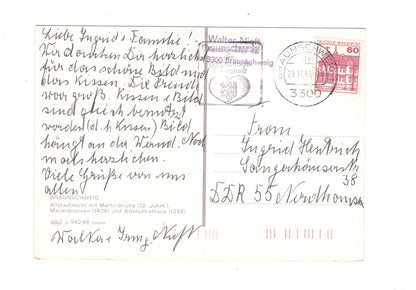 Liebe Ingrid + Familie!
Wir danken Dir herzlich
für das schöne Bild und
das Kissen. Die Freude
war groß. Kissen + Bild
sind gleich benutzt
worden (d. h. Kissen) Bild
hängt an der Wand. Noch
mals herzlichen.
Viele Grüße von uns
allen
BRAUNSCHWEIG
Altstadtmarkt mit Martinikirche (12. Jahrh.),
Marienbrunnen (1408) und Altstadtrathaus (1253)
Walter + Irmg. Nuft
Walter
3300 Braunschweig
BRAUNSCHWEIG
3300
DEUTSCHE BUNDESPOST
60
Frau
Ingrid Hentrich
Sangerhäuserstr
38
DDR 55 Nordhausen